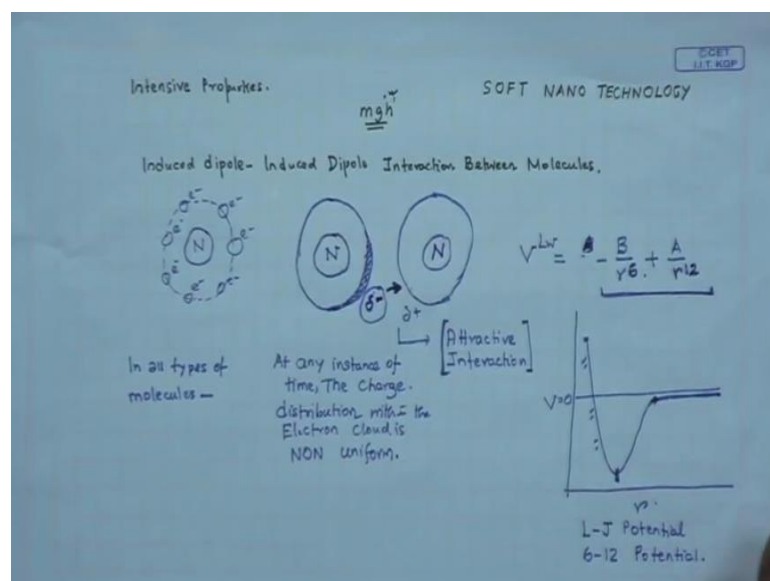 CCET
I.I.T. KGP
Intensive Properties.
SOFT NANO TECHNOLOGY
mgh
Induced dipole- Induced Dipole Interaction Between Molecules.
e- e- e- e- e- e- e-
N
N
N
δ-
δ+
V^LW = - B/r^6 + A/r^12
[Attractive
Interaction]
In all types of
molecules —
At any instance of
time, The Charge
distribution within the
Electron Cloud is
NON uniform.
V=0
r
L-J Potential
6-12 Potential.